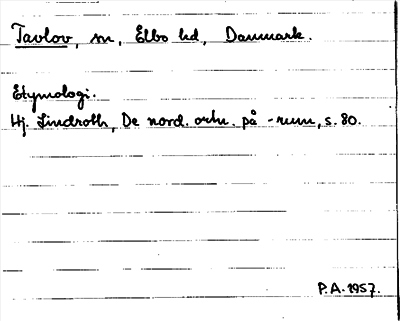 Tavlov, sn, Elbo hd, Danmark.
Etymologi.
Hj. Lindroth, De nord. ortn. på -rum, s. 80.
P.A. 1957.